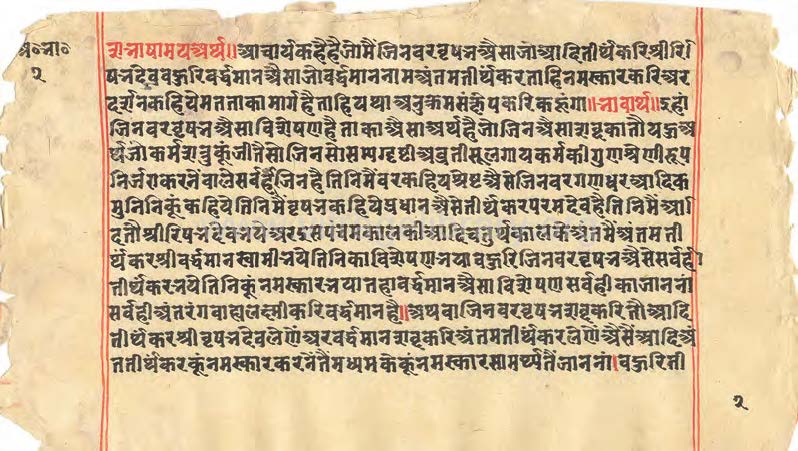 अ॰पा॰
२
भाषामयअर्थ॥आचार्यकहैहैजोमैंजिनवरवृषभऐसाजोआदितीर्थंकरिश्रीरि
षभदेवबहुरिवर्द्धमानऐसाजोवर्द्धमाननामअंतमतीर्थंकरताहिनमस्कारकरिअर
दर्शनकहियेमतताकामार्गहैताहियथाअनुक्रमसंक्षेपकरिकहूंगा॥भावार्थ॥इहां
जिनवरवृषभऐसाविशेषणहैताकाऐसाअर्थहैजोजिनऐसाशब्दकातौयहुअ
र्थजोकर्मशत्रुकूंजीतैसोजिनसोसम्यग्दृष्टीअव्रतीसूंलगायकर्मकीगुणश्रेणीरूप
निर्जराकरनेंवालेसर्वहीजिनहैतिनिमैंवरकहियेश्रेष्टऐसेजिनवरगणधरआदिक
मुनिनिकूंकहियेतिनिमैंवृषभकहियेप्रधानऐसेतीर्थंकरपरमदेवहैतिनिमैंआ
दितौश्रीरिषभदेवभयेअरइसपंचमकालकीआदिचतुर्थकालकेअंतमैंअंतमती
र्थंकरश्रीवर्द्धमानस्वामीभयेतिनिकाविशेषणभयाबहुरिजिनवरवृषभऐसेसर्वही
तीर्थंकरभयेतिनिकूंनमस्कारभयातहांवर्द्धमानऐसाविशेषणसर्वहीकाजाननां
सर्वहीअंतरंगबाह्यलक्ष्मीकरिवर्द्धमानहै॥अथवाजिनवरवृषभशब्दकरितौआदि
तीर्थंकरश्रीवृषभदेवलेणेंअरवर्द्धमानशब्दकरिअंतमतीर्थंकरलेणेंऐसैंआदिअं
ततीर्थंकरकूंनमस्कारकरनेतैंमध्यमकेकूंनमस्कारसामर्थ्यतैंजाननां।बहुरिती
२